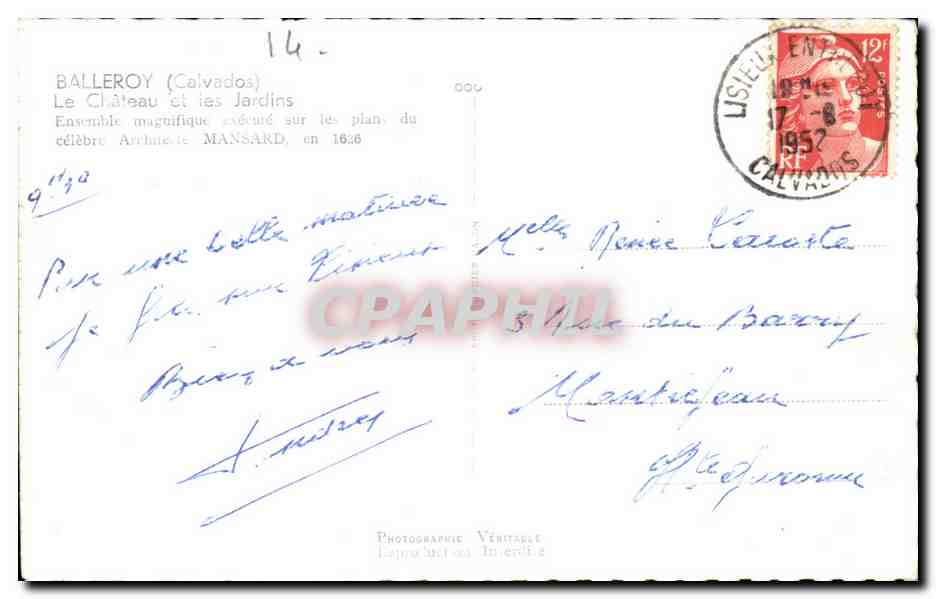 14.
BALLEROY (Calvados)
Le Château et les Jardins
Ensemble magnifique exécuté sur les plans du
célèbre Architecte MANSARD, en 1626
9 h 30
Par une belle matinée
je file sur Lisieux
Bien à vous
Andrey
12F
POSTES
RF
LISIEUX ENTREPOT
18 H
17 -8
1952
CALVADOS
Melle Renée
3 Rue du Barry
Montréjeau
Hte Garonne
CPAPHIL
PHOTOGRAPHIE VÉRITABLE
Reproduction Interdite